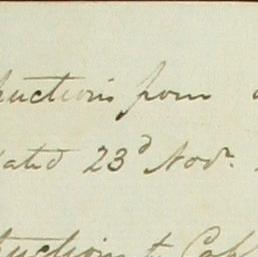 ructions from
ated 23d Novr.
ructions to Cap